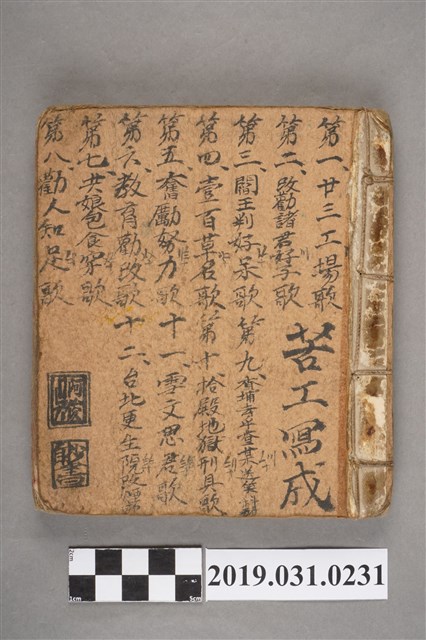 第一、廿三工場歌
第二、改勸諸君好子歌
第三、閻王判好呆歌
第四、壹百草名歌
第五、奮勵努力歌
第六、教育勸改歌
第七、共娘包食穿歌
第八、勸人知足歌
苦工寫成
第九、
第十拾殿地獄刑具歌
十一、雪文思君歌
十二、台北更生院改
2cm
1cm
5cm
2019.031.0231